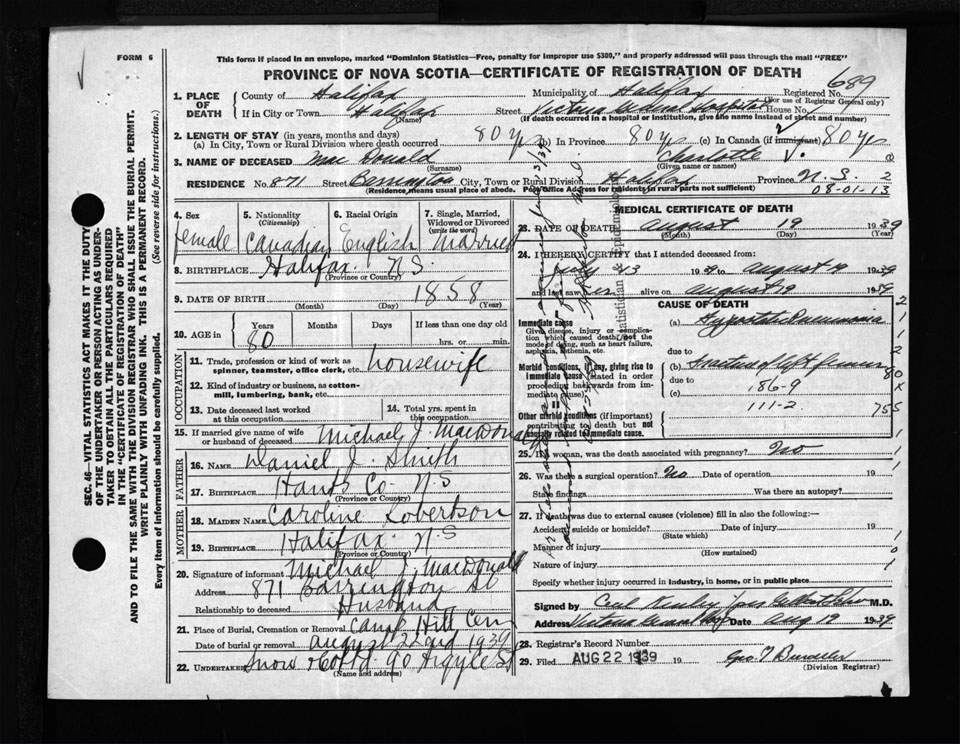 FORM 6
This form if placed in an envelope, marked "Dominion Statistics—Free, penalty for improper use $300," and properly addressed will pass through the mail "FREE"
PROVINCE OF NOVA SCOTIA—CERTIFICATE OF REGISTRATION OF DEATH
689
1. PLACE OF DEATH
County of Halifax Municipality of Halifax Registered No.
(For use of Registrar General only)
If in City or Town Halifax Street Victoria General Hospital House No.
(Name) (If death occurred in a hospital or institution, give the name instead of street and number)
2. LENGTH OF STAY (in years, months and days)
(a) In City, Town or Rural Division where death occurred 80 yrs (b) In Province 80 yrs (c) In Canada (if immigrant) 80 yrs
3. NAME OF DECEASED Mac Donald Charlotte V.
(Surname) (Given name or names)
RESIDENCE No. 871 Street Barrington City, Town or Rural Division Halifax Province N.S. 2
(Residence means usual place of abode. Post Office Address for residents in rural parts not sufficient) 08-01-13
4. Sex female
5. Nationality (Citizenship) Canadian
6. Racial Origin English
7. Single, Married, Widowed or Divorced (write the word) Married
8. BIRTHPLACE Halifax N.S.
(Province or Country)
9. DATE OF BIRTH 1858
(Month) (Day) (Year)
10. AGE in Years Months Days If less than one day old
80 hrs. or min.
OCCUPATION
11. Trade, profession or kind of work as spinner, teamster, office clerk, etc. housewife
12. Kind of industry or business, as cotton-mill, lumbering, bank, etc.
13. Date deceased last worked at this occupation
14. Total yrs. spent in this occupation
15. If married give name of wife or husband of deceased Michael J. MacDonald
FATHER
16. NAME Daniel J. Smith
17. BIRTHPLACE Hants Co. N.S
(Province or Country)
MOTHER
18. MAIDEN NAME Caroline Robertson
19. BIRTHPLACE Halifax. N.S
(Province or Country)
20. Signature of informant Michael J. MacDonald
Address 871 Barrington St
Relationship to deceased Husband
21. Place of Burial, Cremation or Removal Camp Hill Cem
Date of burial or removal August 22nd 1939
22. UNDERTAKER Snow & Co Ltd 90 Argyle St
(Name and address)
MEDICAL CERTIFICATE OF DEATH
23. DATE OF DEATH August 19 1939
(Month) (Day) (Year)
24. I HEREBY CERTIFY that I attended deceased from:
July 19 to August 19 1939
and last saw her alive on August 19 1939
CAUSE OF DEATH
Immediate cause
Give disease, injury or complication which caused death, not the mode of dying, such as heart failure, asphyxia, asthenia, etc.
(a) Hypostatic Pneumonia
due to
Morbid conditions, if any, giving rise to immediate cause (stated in order proceeding backwards from immediate cause).
(b) Fracture of left femur
due to
186-9
(c)
111-2
II
Other morbid conditions (if important) contributing to death but not causally related to immediate cause.
755
25. If a woman, was the death associated with pregnancy? No
26. Was there a surgical operation? No Date of operation 19
State findings Was there an autopsy?
27. If death was due to external causes (violence) fill in also the following:—
Accident, suicide or homicide? Date of injury 19
(State which)
Manner of injury
(How sustained)
Nature of injury
Specify whether injury occurred in industry, in home, or in public place
Signed by M.D.
Address Victoria General Hosp Date Aug 19 1939
28. Registrar's Record Number
29. Filed AUG 22 1939 19
(Division Registrar)
Statistician Epidemiologist
SEC. 46—VITAL STATISTICS ACT MAKES IT THE DUTY
OF THE UNDERTAKER OR PERSON ACTING AS UNDER-
TAKER TO OBTAIN ALL THE PARTICULARS REQUIRED
IN THE "CERTIFICATE OF REGISTRATION OF DEATH"
AND TO FILE THE SAME WITH THE DIVISION REGISTRAR WHO SHALL ISSUE THE BURIAL PERMIT.
WRITE PLAINLY WITH UNFADING INK. THIS IS A PERMANENT RECORD.
Every item of information should be carefully supplied. (See reverse side for instructions.)